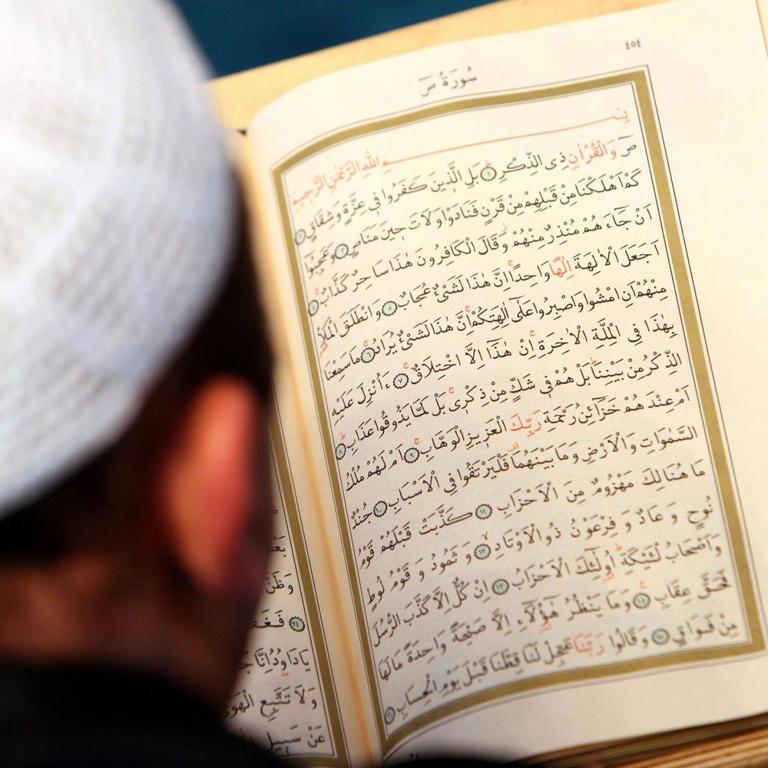 ٤٥٤
سُورَةُ صٓ
بِسْــــمِ اللّٰهِ الرَّحْمٰنِ الرَّحِيمِ
صٓ وَالْقُرْاٰنِ ذِى الذِّكْرِ ١ بَلِ الَّذِينَ كَفَرُوا فِى عِزَّةٍ وَشِقَاقٍ ٢
كَمْ اَهْلَكْنَا مِنْ قَبْلِهِمْ مِنْ قَرْنٍ فَنَادَوْا وَلَاتَ حِينَ مَنَاصٍ ٣ وَعَجِبُوا
اَنْ جَاءَهُمْ مُنْذِرٌ مِنْهُمْ وَقَالَ الْكَافِرُونَ هٰذَا سَاحِرٌ كَذَّابٌ ٤
اَجَعَلَ الْاٰلِهَةَ اِلٰهًا وَاحِدًا اِنَّ هٰذَا لَشَىْءٌ عُجَابٌ ٥ وَانْطَلَقَ الْمَلَاُ
مِنْهُمْ اَنِ امْشُوا وَاصْبِرُوا عَلٰى اٰلِهَتِكُمْ اِنَّ هٰذَا لَشَىْءٌ يُرَادُ ٦ مَا سَمِعْنَا
بِهٰذَا فِى الْمِلَّةِ الْاٰخِرَةِ اِنْ هٰذَا اِلَّا اخْتِلَاقٌ ٧ ءَاُنْزِلَ عَلَيْهِ
الذِّكْرُ مِنْ بَيْنِنَا بَلْ هُمْ فِى شَكٍّ مِنْ ذِكْرِى بَلْ لَمَّا يَذُوقُوا عَذَابِ ٨
اَمْ عِنْدَهُمْ خَزَائِنُ رَحْمَةِ رَبِّكَ الْعَزِيزِ الْوَهَّابِ ٩ اَمْ لَهُمْ مُلْكُ
السَّمٰوَاتِ وَالْاَرْضِ وَمَا بَيْنَهُمَا فَلْيَرْتَقُوا فِى الْاَسْبَابِ ١٠ جُنْدٌ
مَا هُنَالِكَ مَهْزُومٌ مِنَ الْاَحْزَابِ ١١ كَذَّبَتْ قَبْلَهُمْ قَوْمُ
نُوحٍ وَعَادٌ وَفِرْعَوْنُ ذُو الْاَوْتَادِ ١٢ وَثَمُودُ وَقَوْمُ لُوطٍ
وَاَصْحَابُ لْـَٔيْكَةِ اُولٰئِكَ الْاَحْزَابُ ١٣ اِنْ كُلٌّ اِلَّا كَذَّبَ الرُّسُلَ
فَحَقَّ عِقَابِ ١٤ وَمَا يَنْظُرُ هٰؤُلَاءِ اِلَّا صَيْحَةً وَاحِدَةً مَا لَهَا
مِنْ فَوَاقٍ ١٥ وَقَالُوا رَبَّنَا عَجِّلْ لَنَا قِطَّنَا قَبْلَ يَوْمِ الْحِسَابِ ١٦
وَظَنَّ
٢٤
يَادَاوُدُ اِنَّا
وَلَا تَتَّبِعِ الْهَوٰى
عَنْ سَبِيلِ